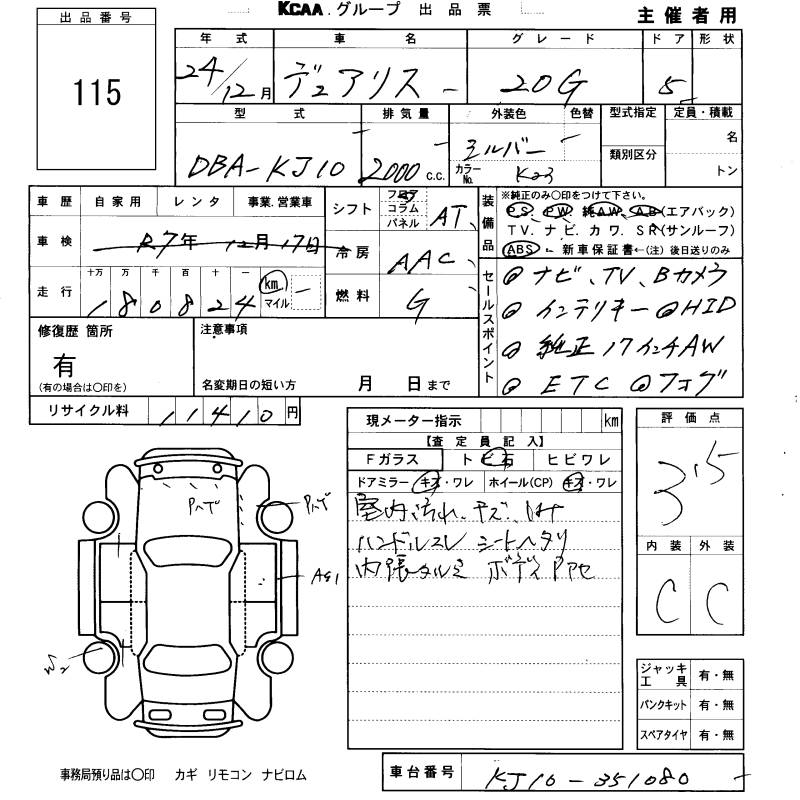 KCAA.グループ 出品票
主催者用
出品番号
115
年式 車名 グレード ドア 形状
24/12月 デュアリス 20G 5
型式 排気量 外装色 色替 型式指定 定員・積載
DBA-KJ10 2000 c.c. シルバー 名
カラーNo. K23 類別区分 トン
車歴 自家用 レンタ 事業.営業車
シフト フロア コラム パネル AT
装備品 ※純正のみ〇印をつけて下さい。
PS、PW、純AW、AB(エアバック)
TV、ナビ、カワ、SR(サンルーフ)
ABS 新車保証書←(注) 後日送りのみ
車検 R7年 12月 17日
冷房 AAC
走行 十万 万 千 百 十 一
180824 km マイル
燃料 G
セールスポイント
◎ナビ、TV、Bカメラ
◎インテリキー ◎HID
◎純正17インチAW
◎ETC ◎フォグ
修復歴 箇所
有
(有の場合は〇印を)
注意事項
名変期日の短い方 月 日まで
リサイクル料 11410円
現メーター指示 km
【査定員記入】
Fガラス ト ビ石 ヒビワレ
ドアミラー キズ・ワレ ホイール(CP) キズ・ワレ
室内汚れ、キズ、
ハンドルスレ シートヘタリ
内張タルミ ボディ
評価点
3.5
内装 外装
C C
A
W2
ジャッキ工具 有・無
パンクキット 有・無
スペアタイヤ 有・無
事務局預り品は〇印 カギ リモコン ナビロム
車台番号 KJ10-351080